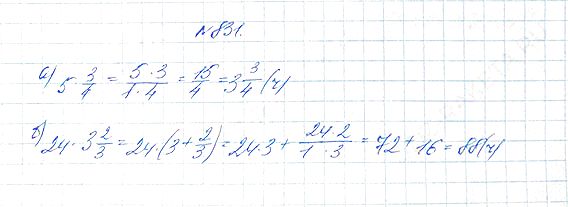 №831.
а) 5 · 3/4 = 5 · 3/1 · 4 = 15/4 = 3 3/4 (ч)
б) 24 · 3 2/3 = 24 · (3 + 2/3) = 24 · 3 + 24 · 2/1 · 3 = 72 + 16 = 88 (ч)